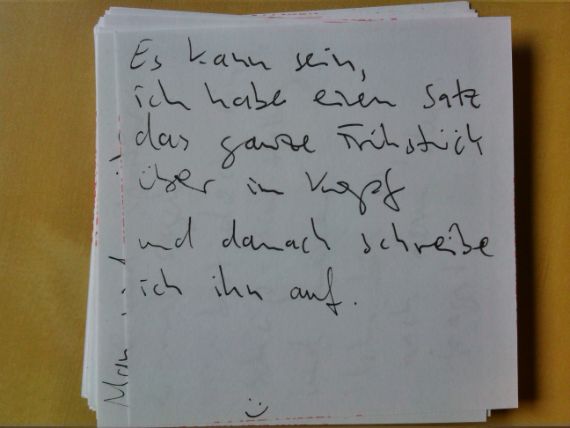 Es kann sein,
ich habe einen Satz
das ganze Frühstück
über im Kopf
und danach schreibe
ich ihn auf.
:)